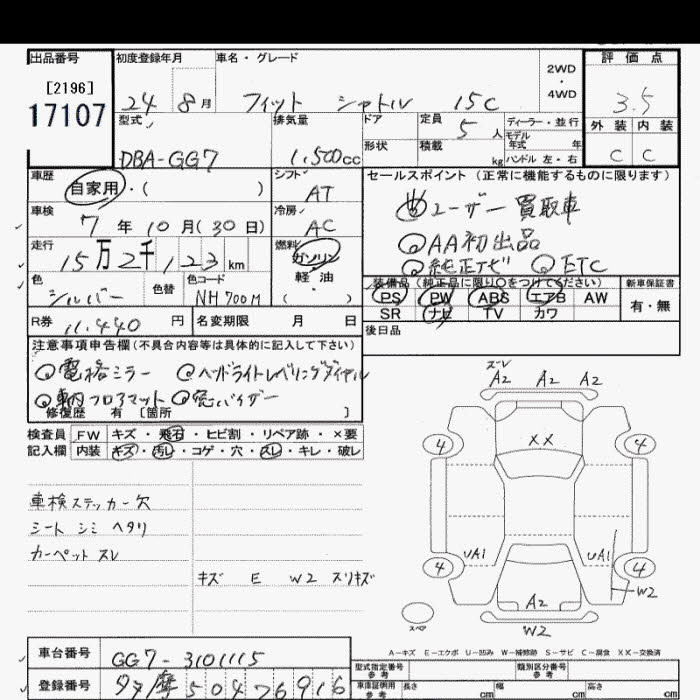 出品番号
[2196]
17107
初度登録年月
24 8月
車名・グレード
フィット シャトル 15C
2WD
・
4WD
評価点
3.5
外装 内装
C C
型式
DBA-GG7
排気量
1,500cc
ドア
定員
5人
ディーラー・並行
モデル年式 年
形状
積載
kg
ハンドル 左・右
車歴
自家用・( )
シフト
AT
車検
7年10月(30日)
冷房
AC
走行
15万2千,123km
燃料
ガソリン
軽・油
( )
色
シルバー
色替
色コード
NH700M
R券
11,440円
名変期限 月 日
セールスポイント(正常に機能するものに限ります)
ユーザー買取車
AA初出品
純正ナビ ETC
装備品(純正品に限り○をつけてください)
新車保証書
PS PW ABS エアB AW
SR ナビ TV カワ
有・無
後日品
注意事項申告欄(不具合内容等は具体的に記入して下さい)
電格ミラー ヘッドライトレベリングダイヤル
車内フロアマット 窓バイザー
修復歴 有 [箇所 ]
検査員
記入欄
FW キズ・飛石・ヒビ割・リペア跡・×要
内装 キズ・汚レ・コゲ・穴・スレ・キレ・破レ
車検ステッカー欠
シート シミ ヘタリ
カーペット スレ
キズ E W2 スリキズ
ズレ
A2 A2 A2
XX
4 4
UA1 UA1
4 4
W2
A2
W2
スペア
A-キズ E-エクボ U-凹み W-補修跡 S-サビ C-腐食 XX-交換済
車台番号
GG7-3101115
登録番号
多摩504 76916
型式指定番号
参考
類別区分番号
参考
車庫証明用
参考
長さ cm
幅 cm
高さ cm